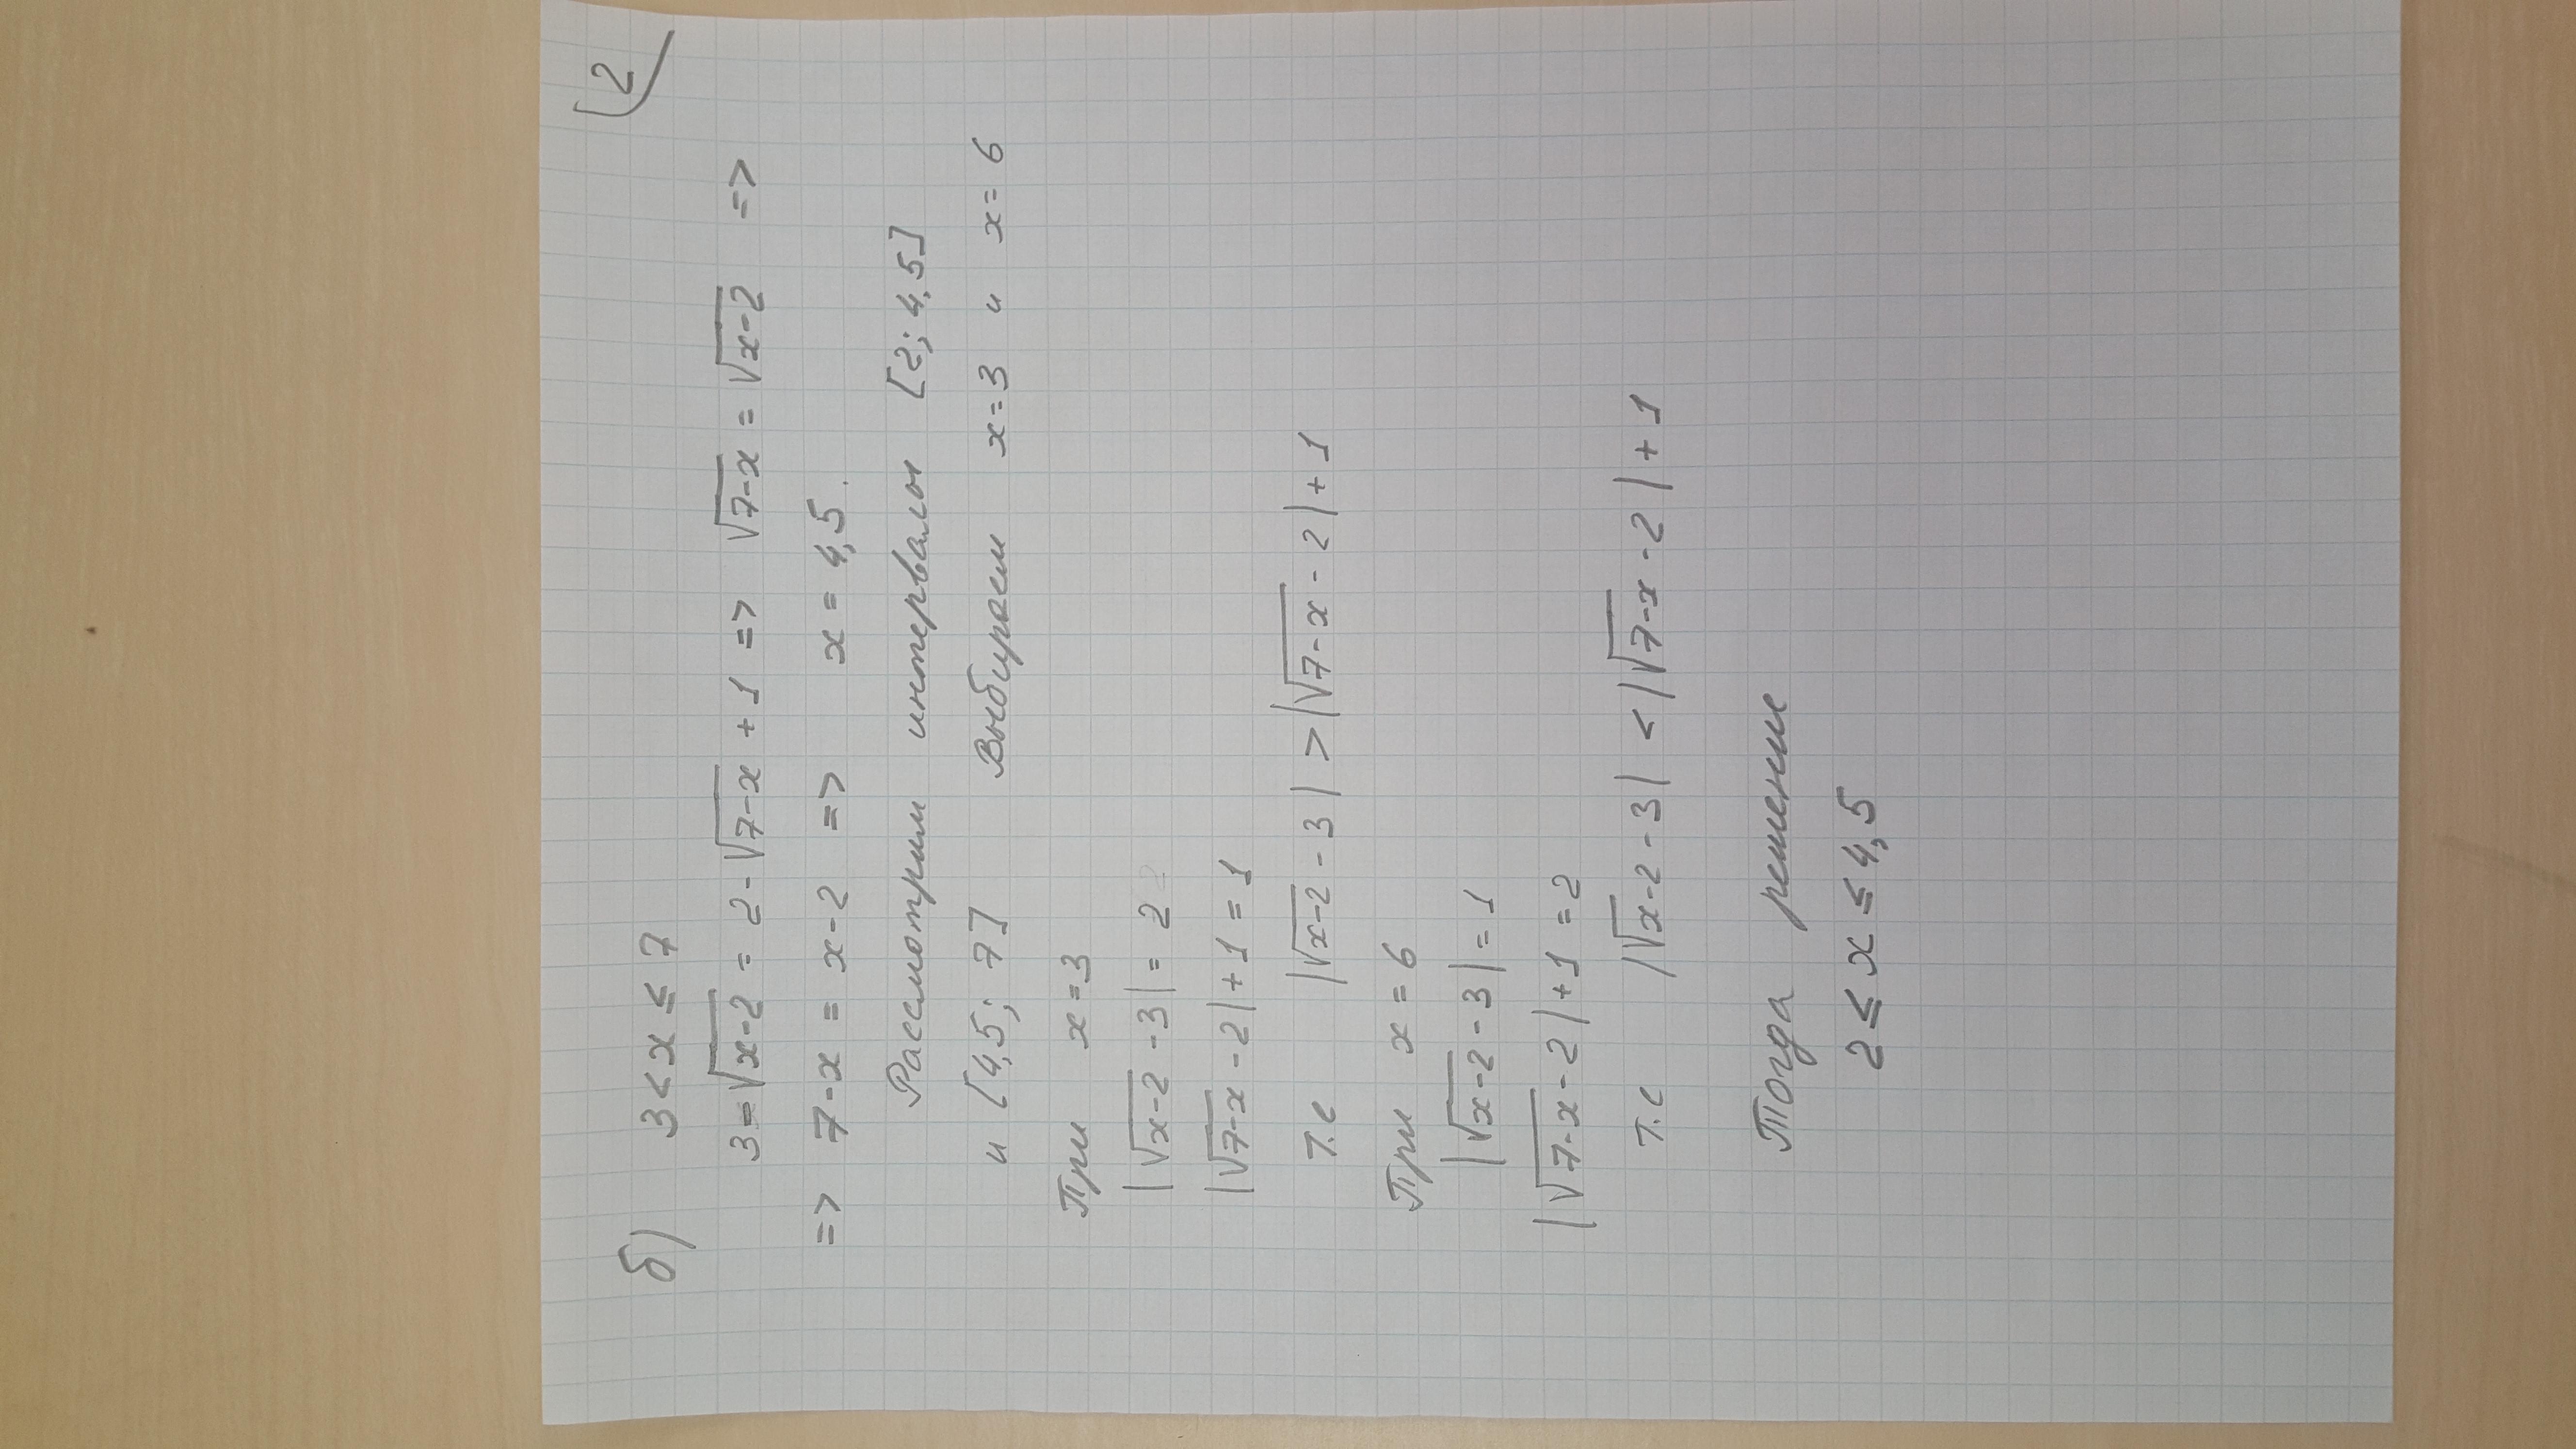 2
б) 3 < x ≤ 7
3 - √x-2 = 2 - √7-x + 1 => √7-x = √x-2 =>
=> 7-x = x-2 => x = 4,5.
Рассмотрим интервалы [2; 4,5]
и [4,5; 7] Выбираем x=3 и x=6
При x=3
|√x-2 - 3| = 2
|√7-x - 2| + 1 = 1
т.е |√x-2 - 3| > |√7-x - 2| + 1
При x = 6
|√x-2 - 3| = 1
|√7-x - 2| + 1 = 2
т.е |√x-2 - 3| < |√7-x - 2| + 1
Тогда решение
2 ≤ x ≤ 4,5